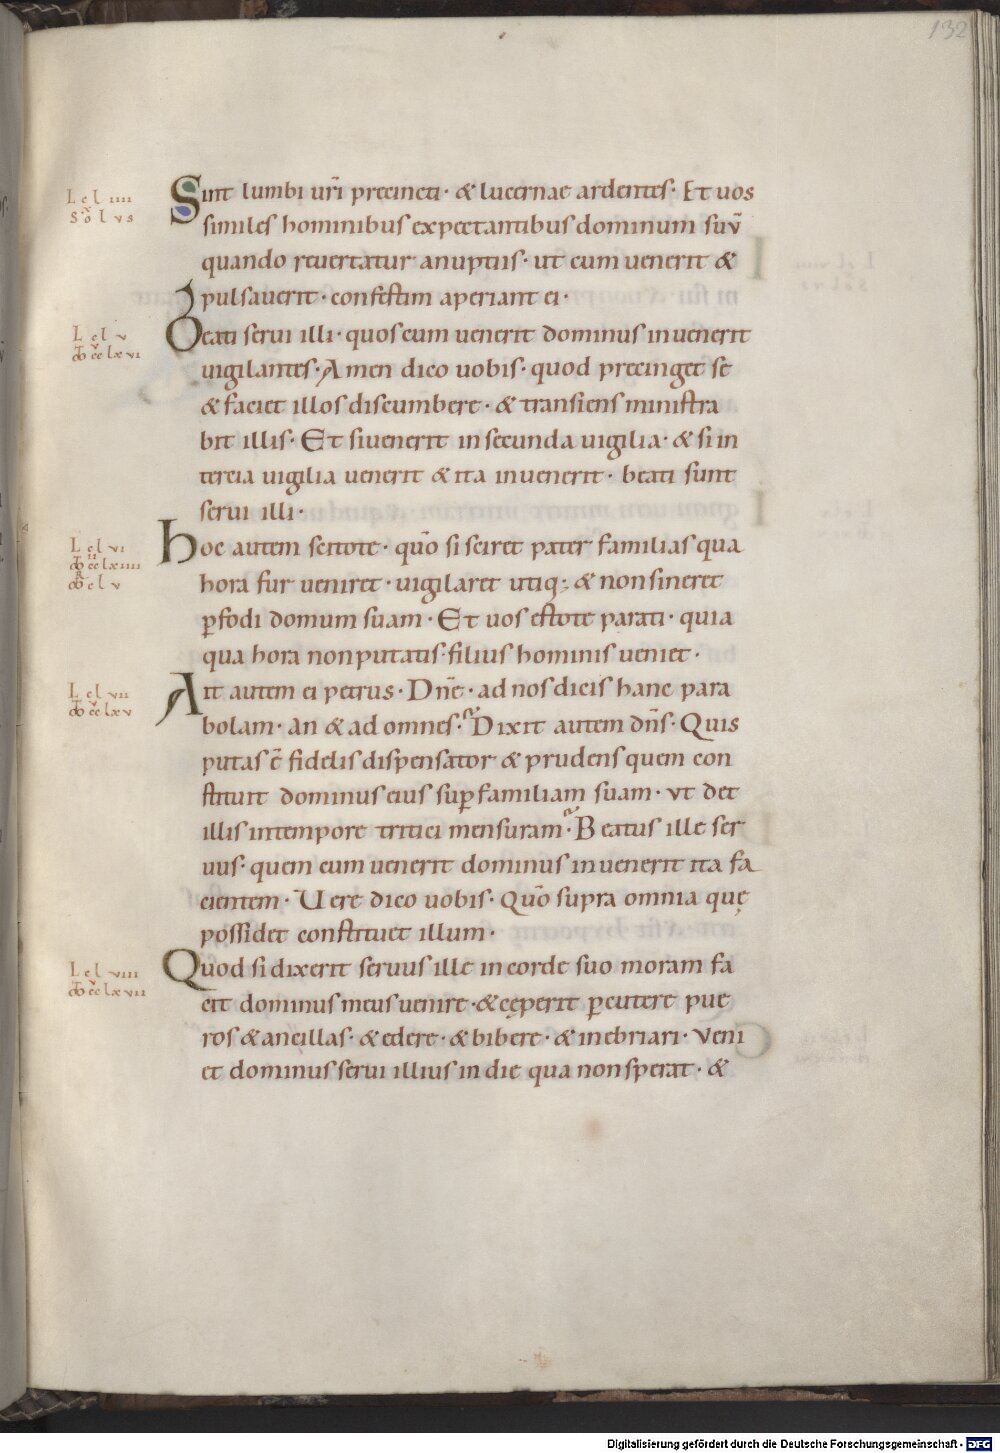 132
L c l IIII
Sol vs
Sint lumbi uri̅ precincti· & lucernae ardentes· Et uos
similes hominibus expectantibus dominum suu̅
quando reuertatur anuptiis· ut cum venerit &
pulsauerit· confestim aperiant ei·
L c l V
Beati serui illi· quos cum venerit dominus inuenerit
uigilantes· Amen dico uobis· quod precinget se
& faciet illos discumbere· & transiens ministra
bit illis· Et siuenerit in secunda uigilia· & si in
tercia uigilia venerit & ita inuenerit· beati sunt
serui illi·
L c l VI
Hoc autem scitote· quo̅ si sciret pater familias qua
hora fur veniret· uigilaret utiq; & nonsineret
p̲fodi domum suam· Et uos estote parati· quia
qua hora nonputatis· filius hominis ueniet·
L c l VII
Ait autem ei petrus· Dn̅e· ad nos dicis hanc para
bolam· an & ad omnes· Dixit autem dn̅s· Quis
putas e̅ fidelis dispensator & prudens quem con
stituit dominus eius sup̲ familiam suam· vt det
illis intempore tritici mensuram· Beatus ille ser
uus· quem cum venerit dominus inuenerit ita fa
cientem· Uere dico uobis· Quo̅ supra omnia quę
possidet constituet illum·
L c l VIII
Quod si dixerit seruus ille in corde suo moram fa
cit dominus meus uenire· & cęperit p̲cutere pue
ros & ancillas· & edere· & bibere· & inebriari· veni
et dominus serui illius in die qua non sperat· &
Digitalisierung gefördert durch die Deutsche Forschungsgemeinschaft - DFG